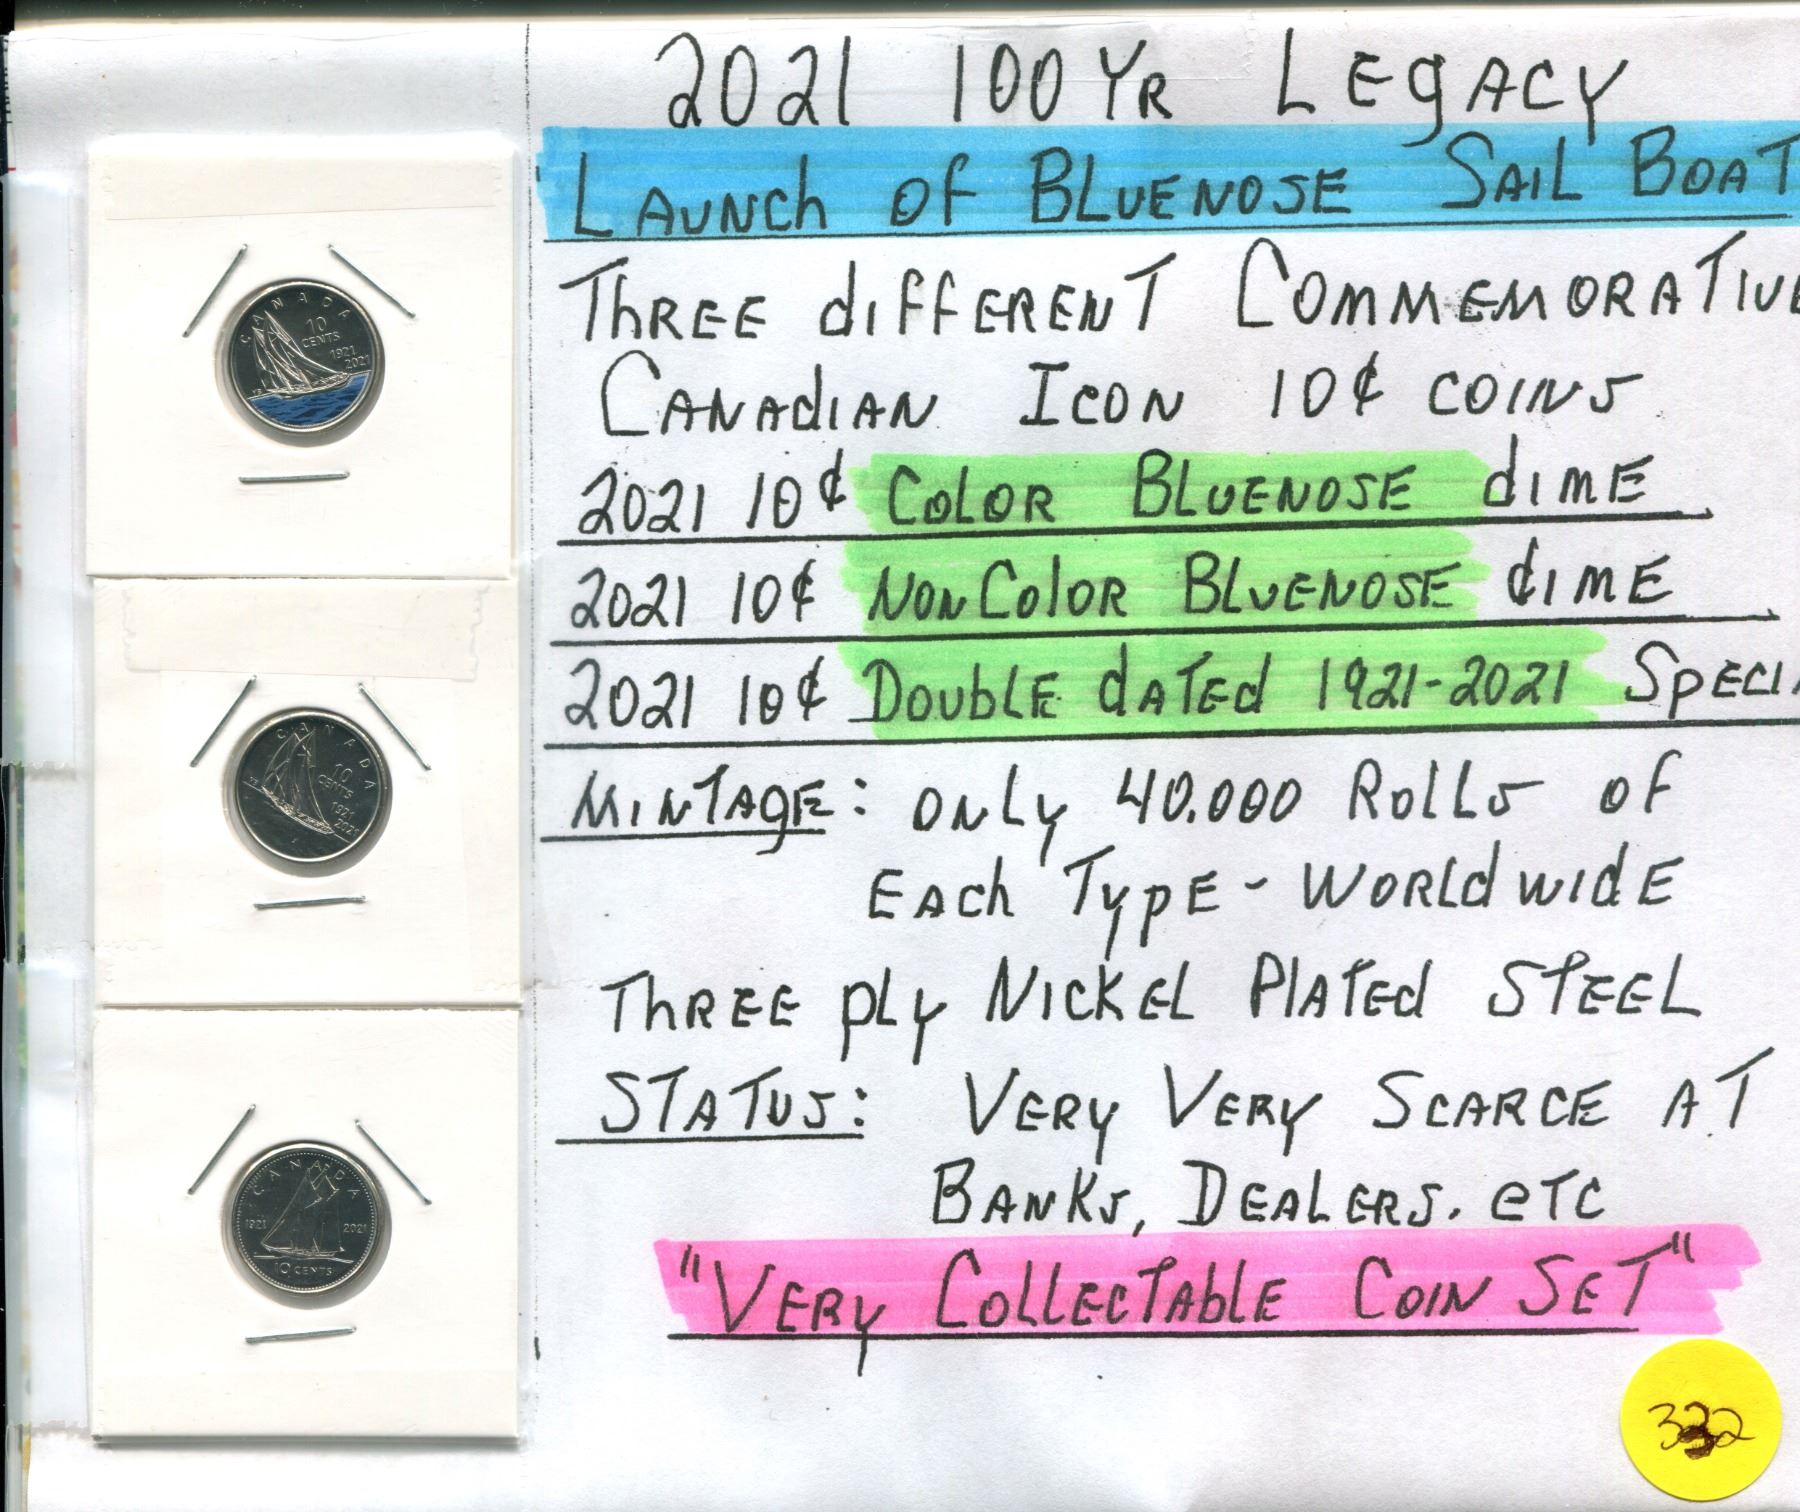 2021 100 YR LEGACY
LAUNCH OF BLUENOSE SAIL BOAT
THREE diFFERENT COMMEMORATIVE
CANAdiAN ICON 10¢ COINS
2021 10¢ COLOR BLUENOSE diME
2021 10¢ NON COLOR BLUENOSE diME
2021 10¢ DOUBLE dATEd 1921-2021 SPECIA
MINTAGE: ONLY 40.000 ROLLS OF
EACH TYPE - WORLD WIDE
THREE PLY NICKEL PLATED STEEL
STATUS: VERY VERY SCARCE AT
BANKS, DEALERS. ETC
"VERY COLLECTABLE COIN SET"
332
CANADA
10
CENTS
1921
2021
CANADA
10
CENTS
1921
2021
CANADA
1921 2021
10 CENTS